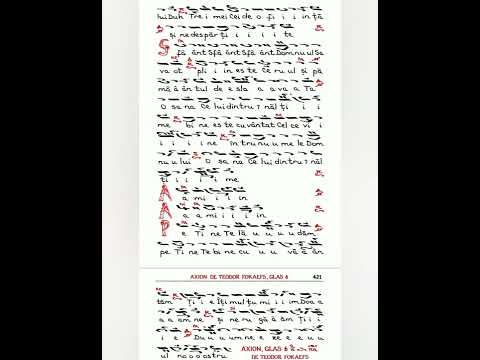 lui Duh Tre i mei Cei de o fi i i in ță
și ne des păr ți i i i i te
S fâ ânt Sfâ ânt Sfâ ânt Dom nul Sa
va ot pli i in es te Ce ru ul și pă
mâ â ân tul de e sla a a va a Ta
O sa na Ce lui din tru î năl ți i i
me bi ne es te cu vân tat Cel ce vi i
i i i i ne în tru nu u me le Dom
nu u lui O sa na Ce lui din tru î năl
ți i i i i i me
A a mi i i in
A a a mi i i in
P e Ti ne Te lă u u u u dăm
pe Ti ne Te bi ne cu u u vâ a ân
AXION DE TEODOR FOKAEFS, GLAS 6 421
tăm Ți i e Îți mul țu mi i i im Doa a
a a am ne și ne ru gă ă ăm Ți i i
e Du u u um ne e ee e e u u
ul no o o stru
AXION, GLAS 6
DE TEODOR FOKAEFS